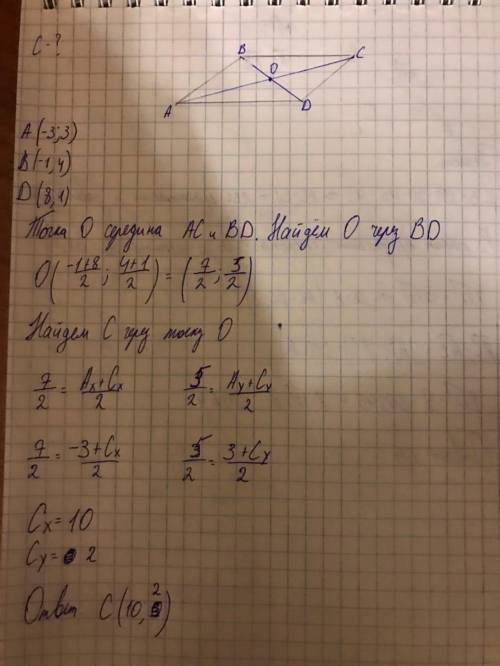 C-?
B
C
O
A
D
A(-3;3)
B(-1,4)
D(8,1)
Точка O середина AC и BD. Найдем O через BD
O((-1+8)/2; (4+1)/2) = (7/2; 5/2)
Найдем C через точку O
7/2 = (Ax+Cx)/2    5/2 = (Ay+Cy)/2
7/2 = (-3+Cx)/2    5/2 = (3+Cy)/2
Cx = 10
Cy = 2
Ответ C(10, 2)